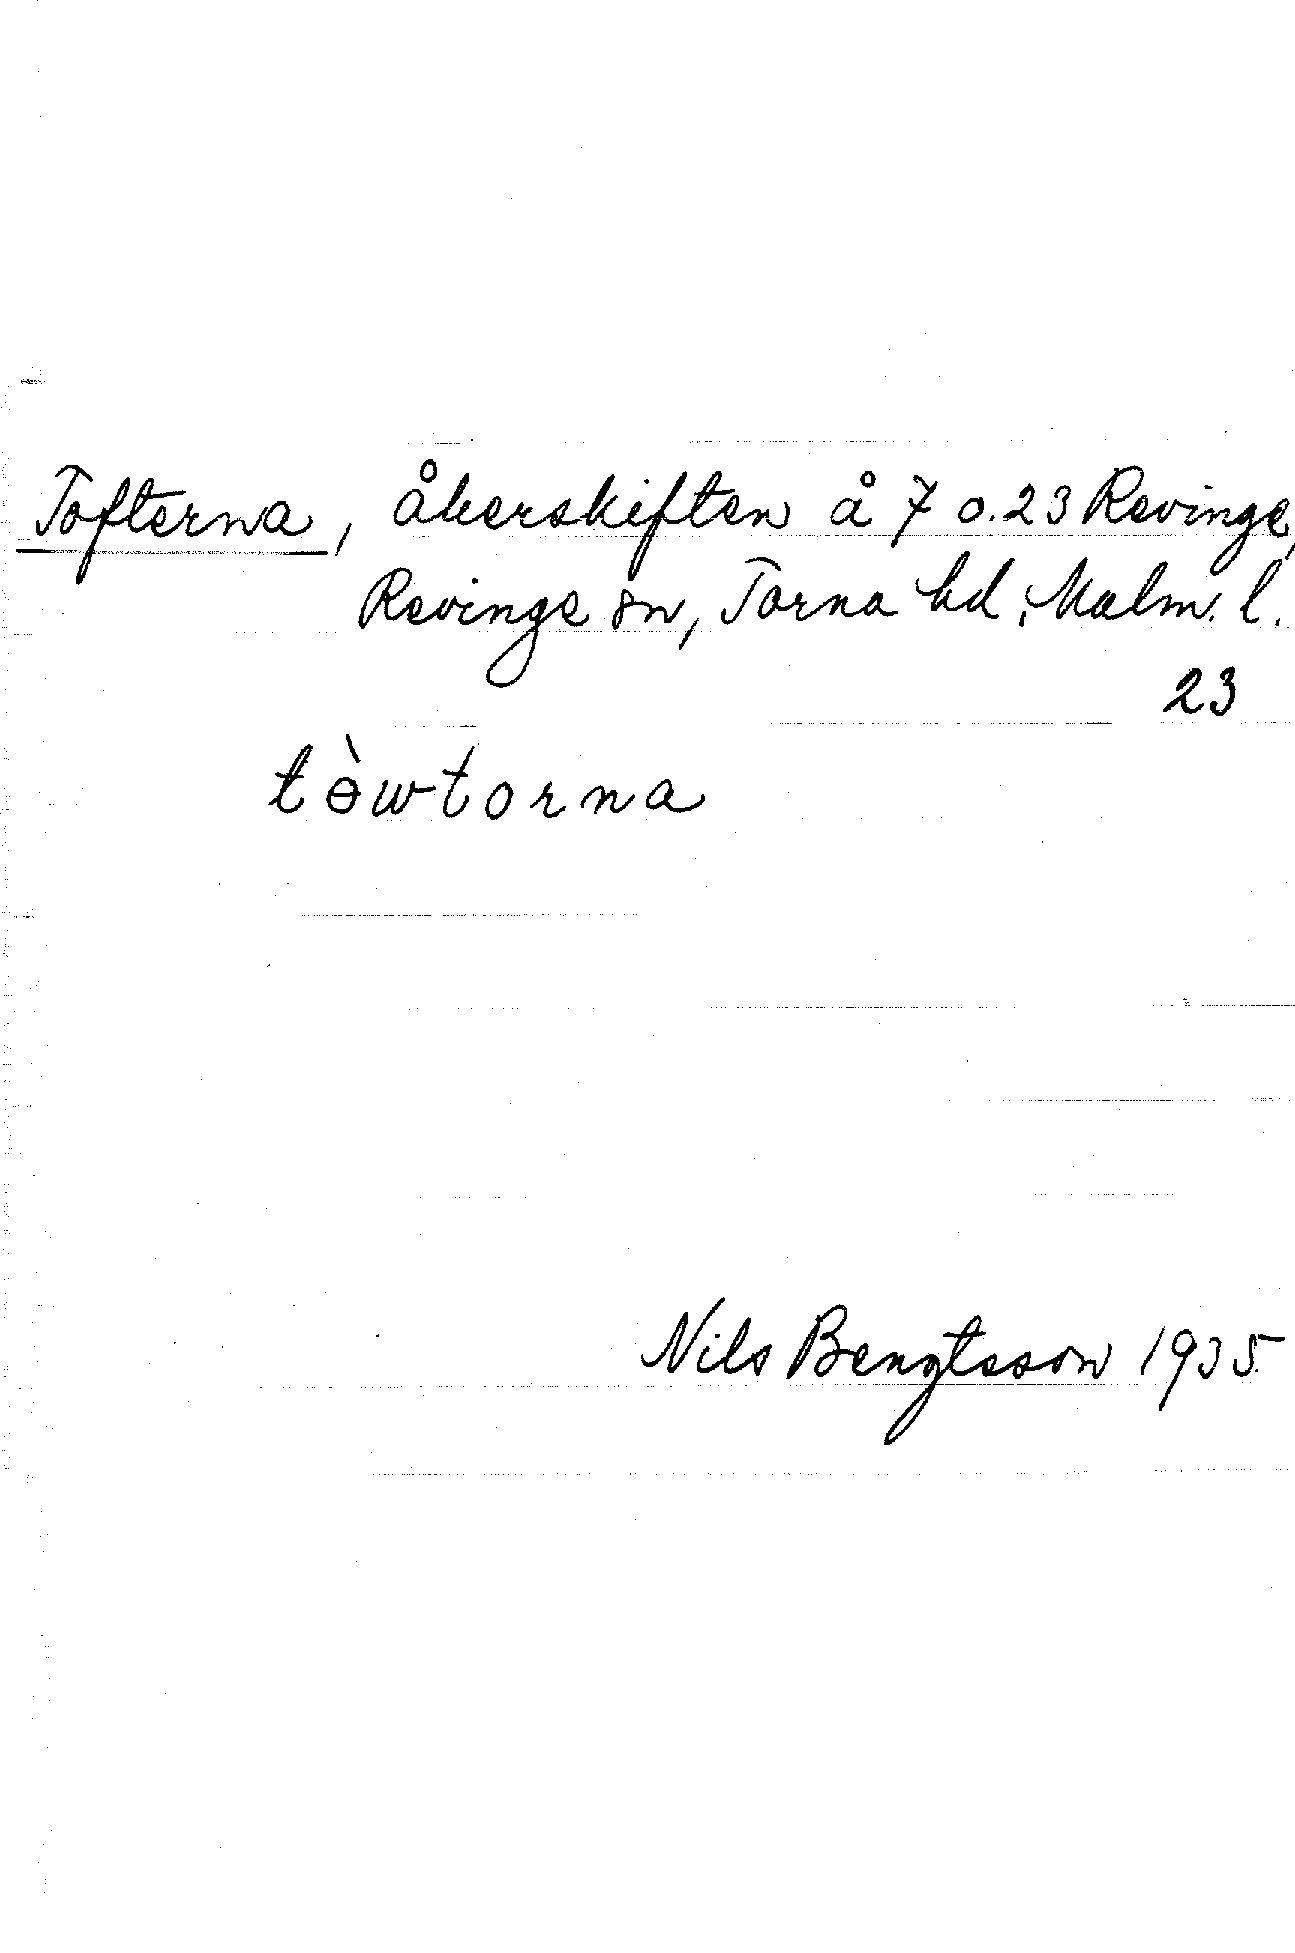 Tofterna, åkerskiften å 7 o. 23 Revinge,
Revinge sn, Torna hd, Malm. l.
23
tɵ̀wtorna
Nils Bengtsson 1935